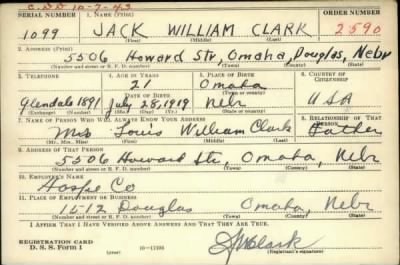 C.DD 10-7-43
SERIAL NUMBER 1. NAME (Print) ORDER NUMBER
1099 JACK WILLIAM CLARK 2590
(First) (Middle) (Last)
2. ADDRESS (Print)
5506 Howard Str, Omaha, Douglas, Nebr
(Number and street or R. F. D. number) (Town) (County) (State)
3. TELEPHONE 4. AGE IN YEARS 5. PLACE OF BIRTH 6. COUNTRY OF CITIZENSHIP
21 Omaha
DATE OF BIRTH (Town or county)
Glendale 1891 July 28, 1919 Nebr USA
(Exchange) (No.) (Mo.) (Day) (Yr.) (State or country)
7. NAME OF PERSON WHO WILL ALWAYS KNOW YOUR ADDRESS 8. RELATIONSHIP OF THAT PERSON
Louis William Clark Father
(Mr., Mrs., Miss) (First) (Middle) (Last)
9. ADDRESS OF THAT PERSON
5506 Howard Str, Omaha, Nebr
(Number and street or R. F. D. number) (Town) (County) (State)
10. EMPLOYER'S NAME
Hospe Co
11. PLACE OF EMPLOYMENT OR BUSINESS
1512 Douglas Omaha, Nebr
(Number and street or R. F. D. number) (Town) (County) (State)
I AFFIRM THAT I HAVE VERIFIED ABOVE ANSWERS AND THAT THEY ARE TRUE.
REGISTRATION CARD
D. S. S. Form 1 (over) (Registrant's signature)